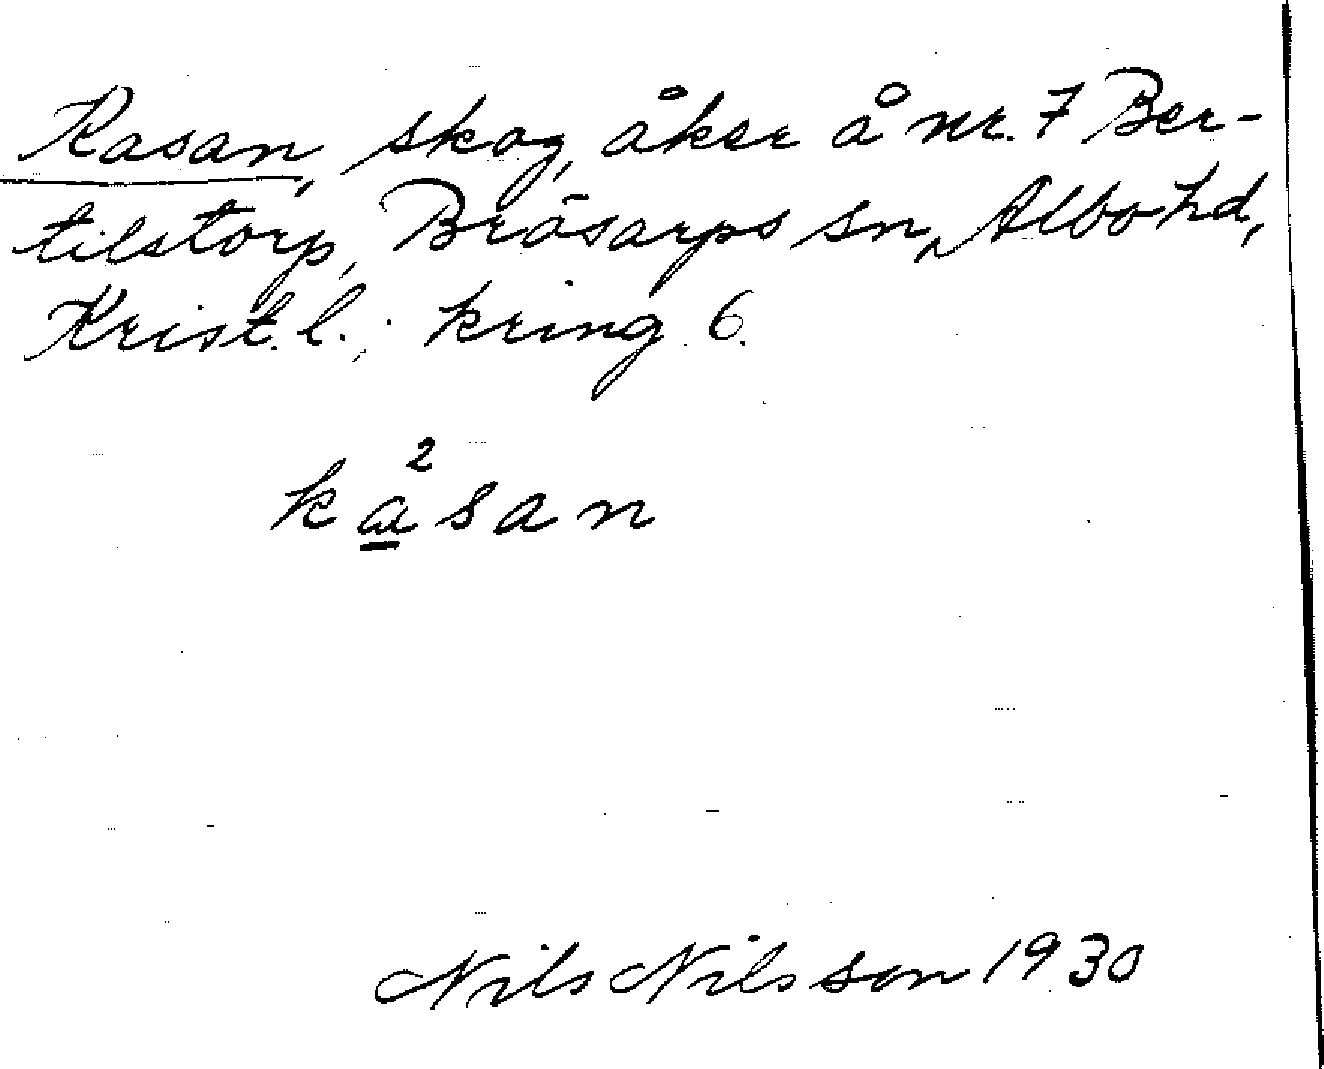 Kasan, skog, åker å nr. 7 Ber-
tilstorp, Bräsarps sn, Albo hd,
Krist. l.; kring 6.
ka̱²san
Nils Nilsson 1930